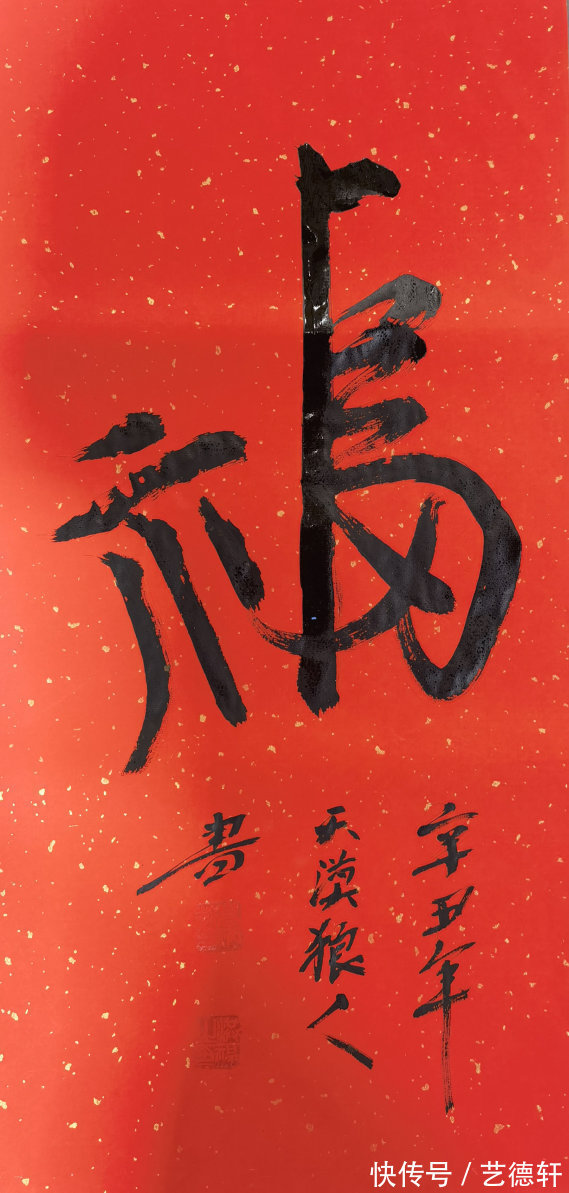 福
辛丑年
天漠狼人
书
快传号 / 艺德轩